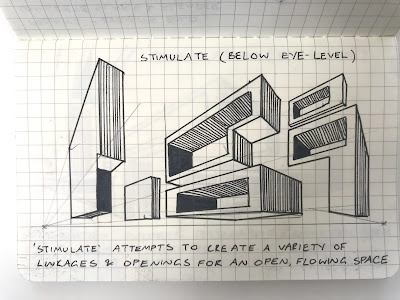 STIMULATE (BELOW EYE-LEVEL)
'STIMULATE' ATTEMPTS TO CREATE A VARIETY OF
LINKAGES & OPENINGS FOR AN OPEN, FLOWING SPACE